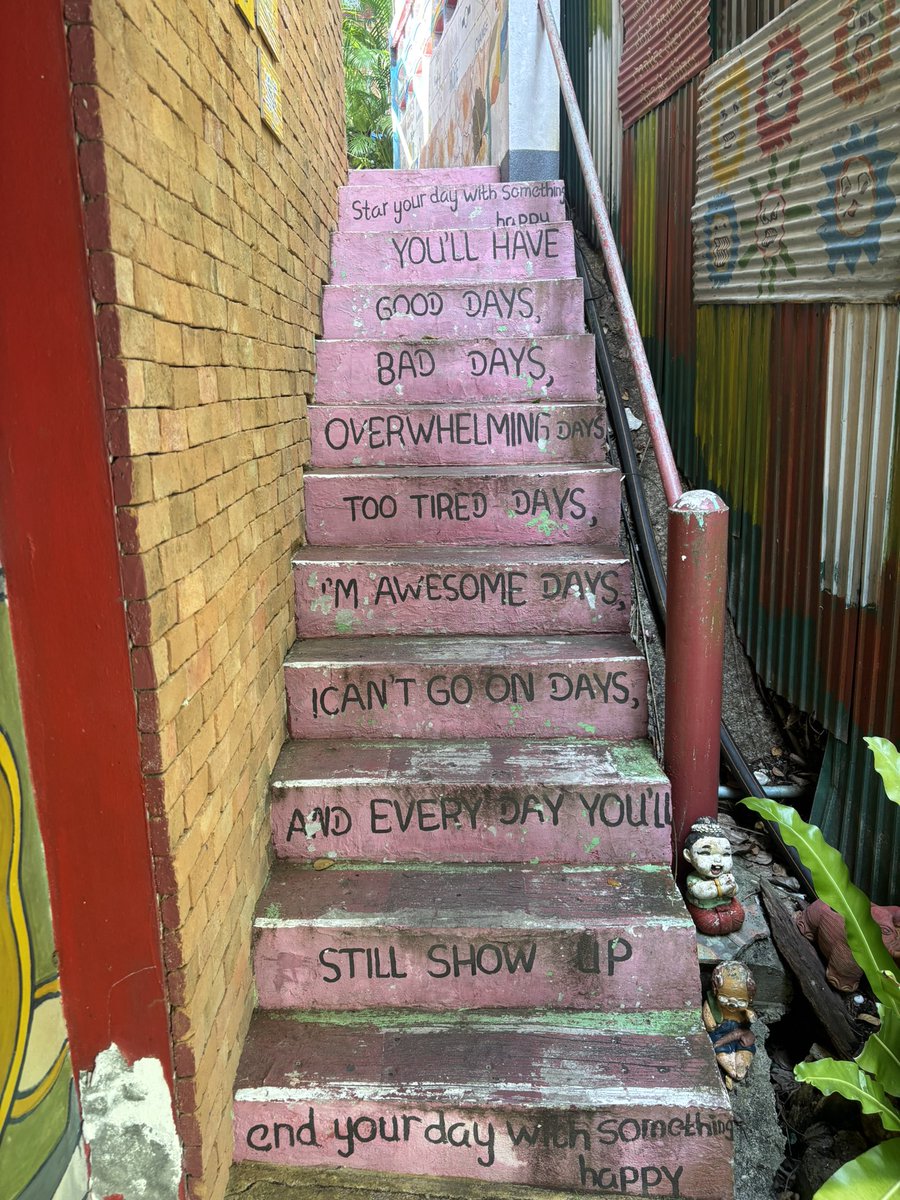 Star your day with something
happy
YOU'LL HAVE
GOOD DAYS,
BAD DAYS,
OVERWHELMING DAYS
TOO TIRED DAYS,
I'M AWESOME DAYS,
I CAN'T GO ON DAYS,
AND EVERY DAY YOU'LL
STILL SHOW UP
end your day with something
happy